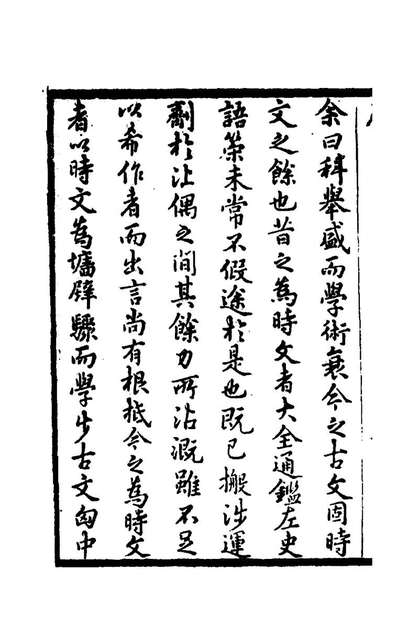 余曰科舉盛而學術衰今之古文固時
文之餘也昔之為時文者大全通鑑左史
語策未常不假途於是也既已搬涉運
劑於比偶之間其餘力所沾溉雖不足
以希作者而出言尚有根柢今之為時文
者以時文為墻壁驟而學步古文匈中